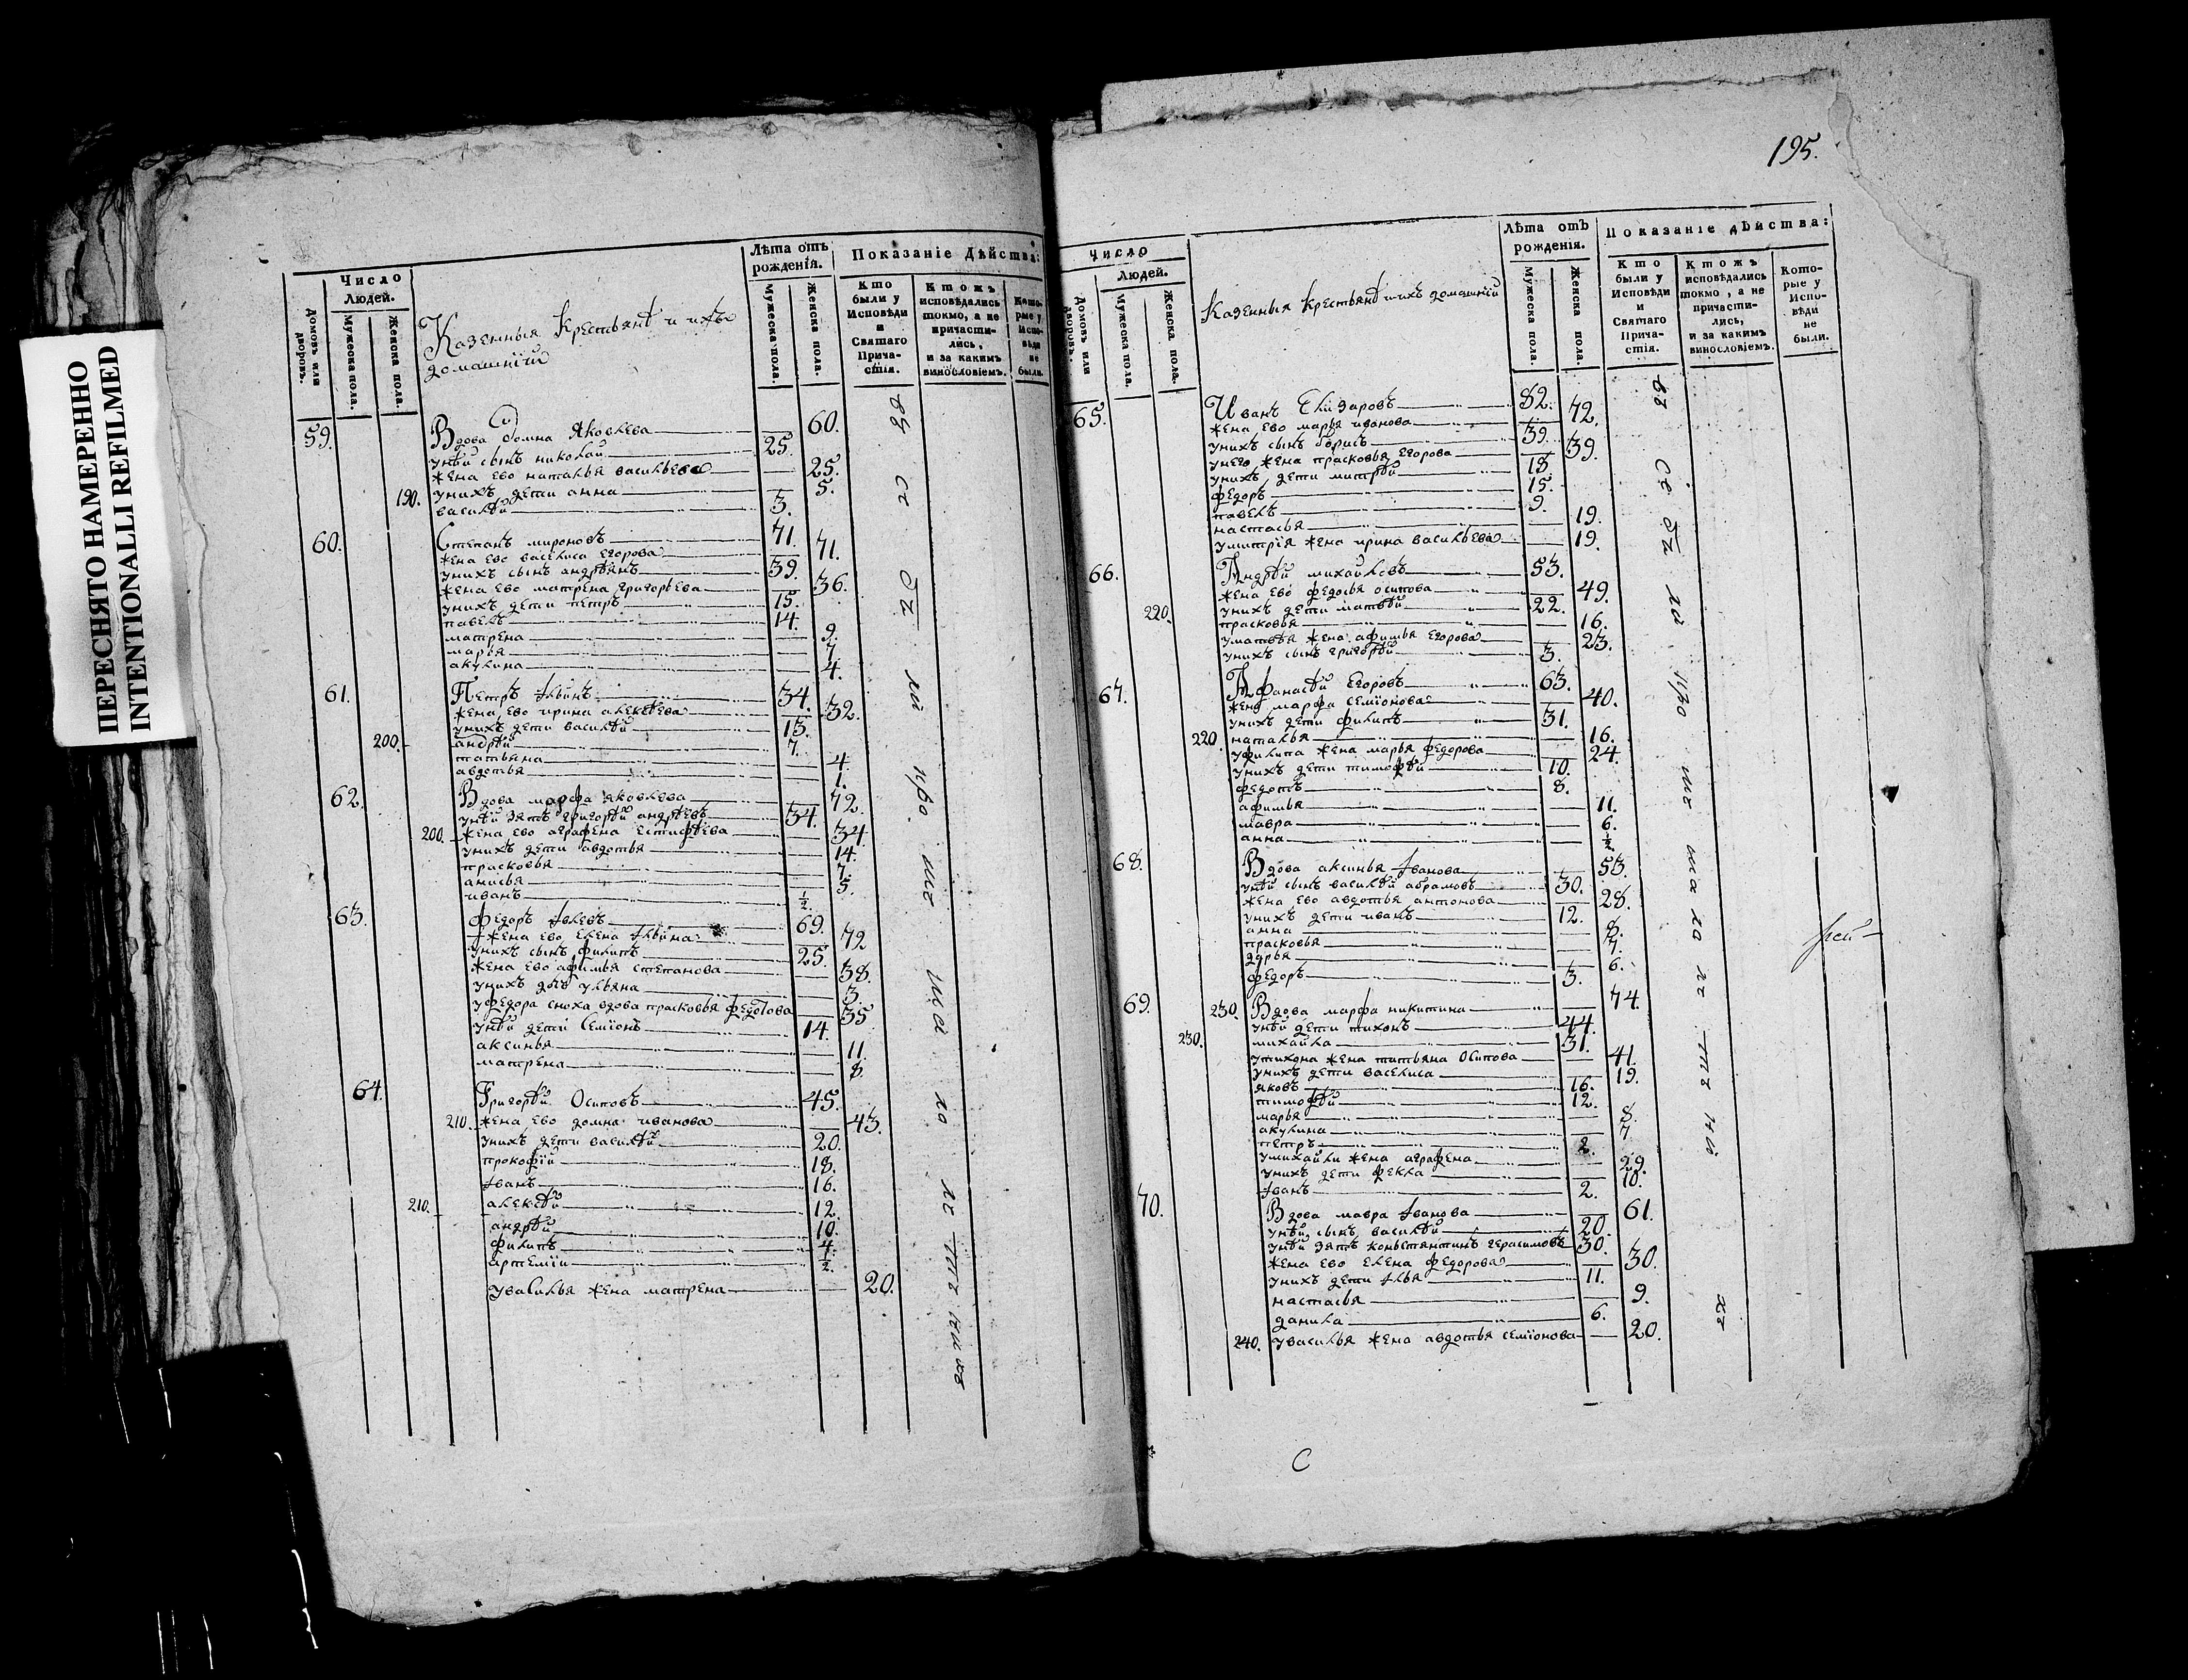 ПЕРЕСНЯТО НАМЕРЕННО
INTENTIONALLI REFILMED
Число
Людей.
Домовъ или дворовъ.
Мужеска пола.
Женска пола.
Казенныя Крестьянѣ и ихъ
домашнїи
Лѣта отъ
рожденія.
Мужеска пола.
Женска пола.
Показаніе Дѣйства:
Кто были у Исповѣди и Святаго Прича- стія.
Ктожъ исповѣдались токмо, а не причасти- лись, и за какимъ винословіемъ.
Кото- рые у Испо- вѣди не были.
59. Вдова домна Яковлева 60.
унѣй сынъ николай 25.
жена ево наталья васильева 25.
190. унихъ дети анна 5.
василѣй 3.
60. Степанъ мироновъ 71.
жена ево василиса Егорова 71.
унихъ сынъ андрѣянъ 39.
жена ево матрена григорьева 36.
унихъ дети петръ 15.
павелъ 14.
матрена 9.
марья 7.
акулина 4.
61. Петръ Ильинъ 34.
жена ево ирина алексѣева 32.
унихъ дети василѣй 13.
200. андрѣй 7.
татьяна 4.
авдотья 1.
62. Вдова марфа яковлева 72.
унѣй зять григорѣй андрѣевъ 34.
200. жена ево аграфена Естифѣева 34.
унихъ дети авдотья 14.
прасковья 7.
анисья 5.
иванъ ½.
63. федоръ Iвлевъ 69.
жена ево Елена Ильина 72
унихъ сынъ филипъ 25.
жена ево афимья степанова 38.
унихъ дочь ульяна 3.
уфедора сноха вдова прасковья федотова 35
унѣй дети Семїонъ 14.
аксинья 11.
матрена 8.
64. Григорѣй Осиповъ 45.
210. жена ево домна иванова 43.
унихъ дети василѣй 20.
прокофїй 18.
Iванъ 16.
210. алексѣй 12.
андрѣй 10.
филипъ 4.
артемїи ½.
увасилья жена матрена 20.
195.
Число
Людей.
Домовъ или дворовъ.
Мужеска пола.
Женска пола.
Казенныя Крестьянѣ и ихъ домашнїй
Лѣта отъ
рожденія.
Мужеска пола.
Женска пола.
Показаніе дѣйства:
Кто были у Исповѣди и Святаго Прича- стія.
Ктожъ исповѣдались токмо, а не причасти- лись, и за какимъ винословіемъ.
Кото- рые у Испо- вѣди не были.
65. Иванъ Елизаровъ 82.
жена ево марья иванова 72.
унихъ сынъ борисъ 39.
унего жена прасковья Егорова 39.
унихъ дети митрѣй 18.
федоръ 15.
павелъ 9.
настасья 19.
умитрїя жена ирина васильева 19.
66. Андрѣй михайловъ 53.
жена ево федосья осипова 49.
220. унихъ дети матвѣй 22.
прасковья 16.
уматвѣя жена афимья Егорова 23.
унихъ сынъ григорѣй 3.
67. Афанасѣй Егоровъ 63.
жена марфа семїонова 40.
унихъ дети филипъ 31.
220. наталья 16.
уфилипа жена марья федорова 24.
унихъ дети тимофѣй 10.
федотъ 8.
афимья 11.
мавра 6.
анна ½.
68. Вдова аксинья Iванова 53.
унѣй сынъ василѣй абрамовъ 30.
жена ево авдотья антонова 28.
унихъ дети иванъ 12.
анна 8.
прасковья 7.
дарья 6.
федоръ 3.
69. 230. Вдова марфа никитина 74.
унѣй дети тихонъ 44.
230. михайла 31.
утихона жена татьяна Осипова 41.
унихъ дети василиса 19.
яковъ 16.
тимофѣй 12.
марья 8.
акулина 7.
петръ 2.
умихайли жена аграфена 29.
унихъ дети фекла 10.
Iванъ 2.
70. Вдова мавра Iванова 61.
унѣй сынъ василѣй 20.
унѣй зять констянтинъ герасимовъ 30.
жена ево Елена федорова 30.
унихъ дети Илья 11.
настасья 9.
данила 6.
240. увасилья жена авдотья семїонова 20.
рей
С